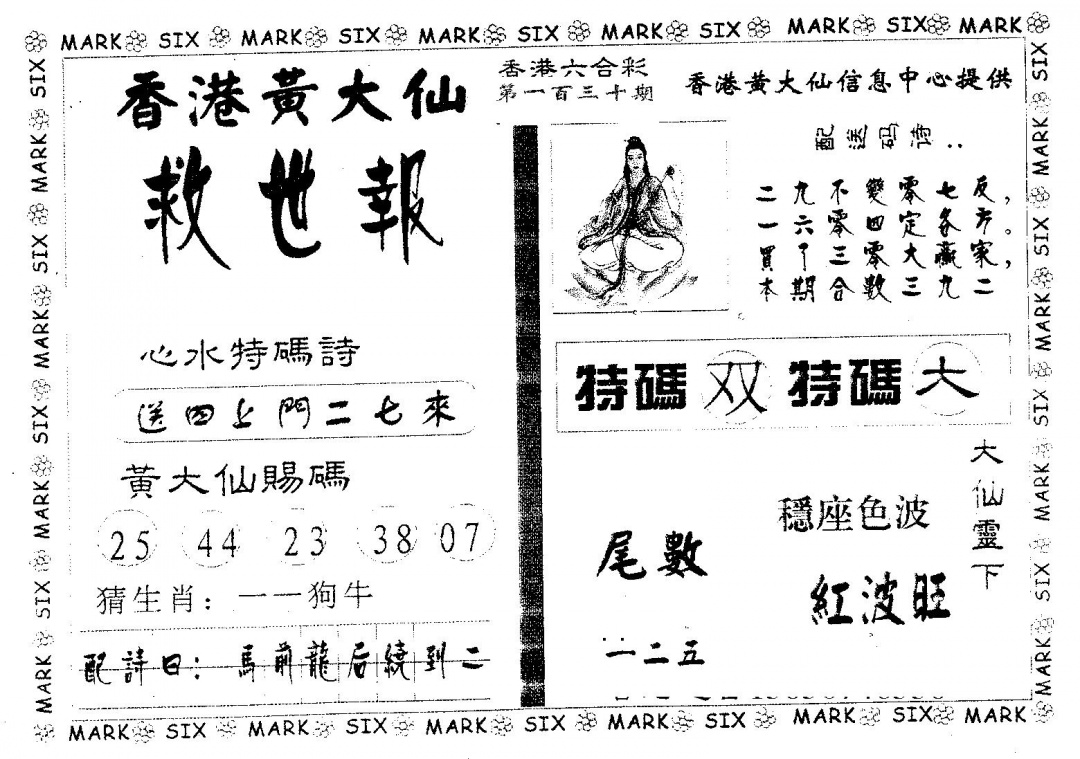 MARK SIX MARK SIX MARK SIX MARK SIX MARK SIX MARK
香港黃大仙
救世報
心水特碼詩
送四上門二七來
黃大仙賜碼
25 44 23 38 07
猜生肖：一一狗牛
配詩曰：馬前龍后繞到二
香港六合彩
第一百三十期
香港黃大仙信息中心提供
配送码诗：
二九不變零七反，
一六零四定各市。
買了三零大贏家，
本期合數三九二
特碼 双 特碼 大
大仙靈下
穩座色波
紅波旺
尾數
一二五
MARK SIX MARK SIX MARK SIX MARK SIX MARK SIX MARK
MARK SIX MARK SIX MARK SIX MARK SIX
MARK SIX MARK SIX MARK SIX MARK SIX